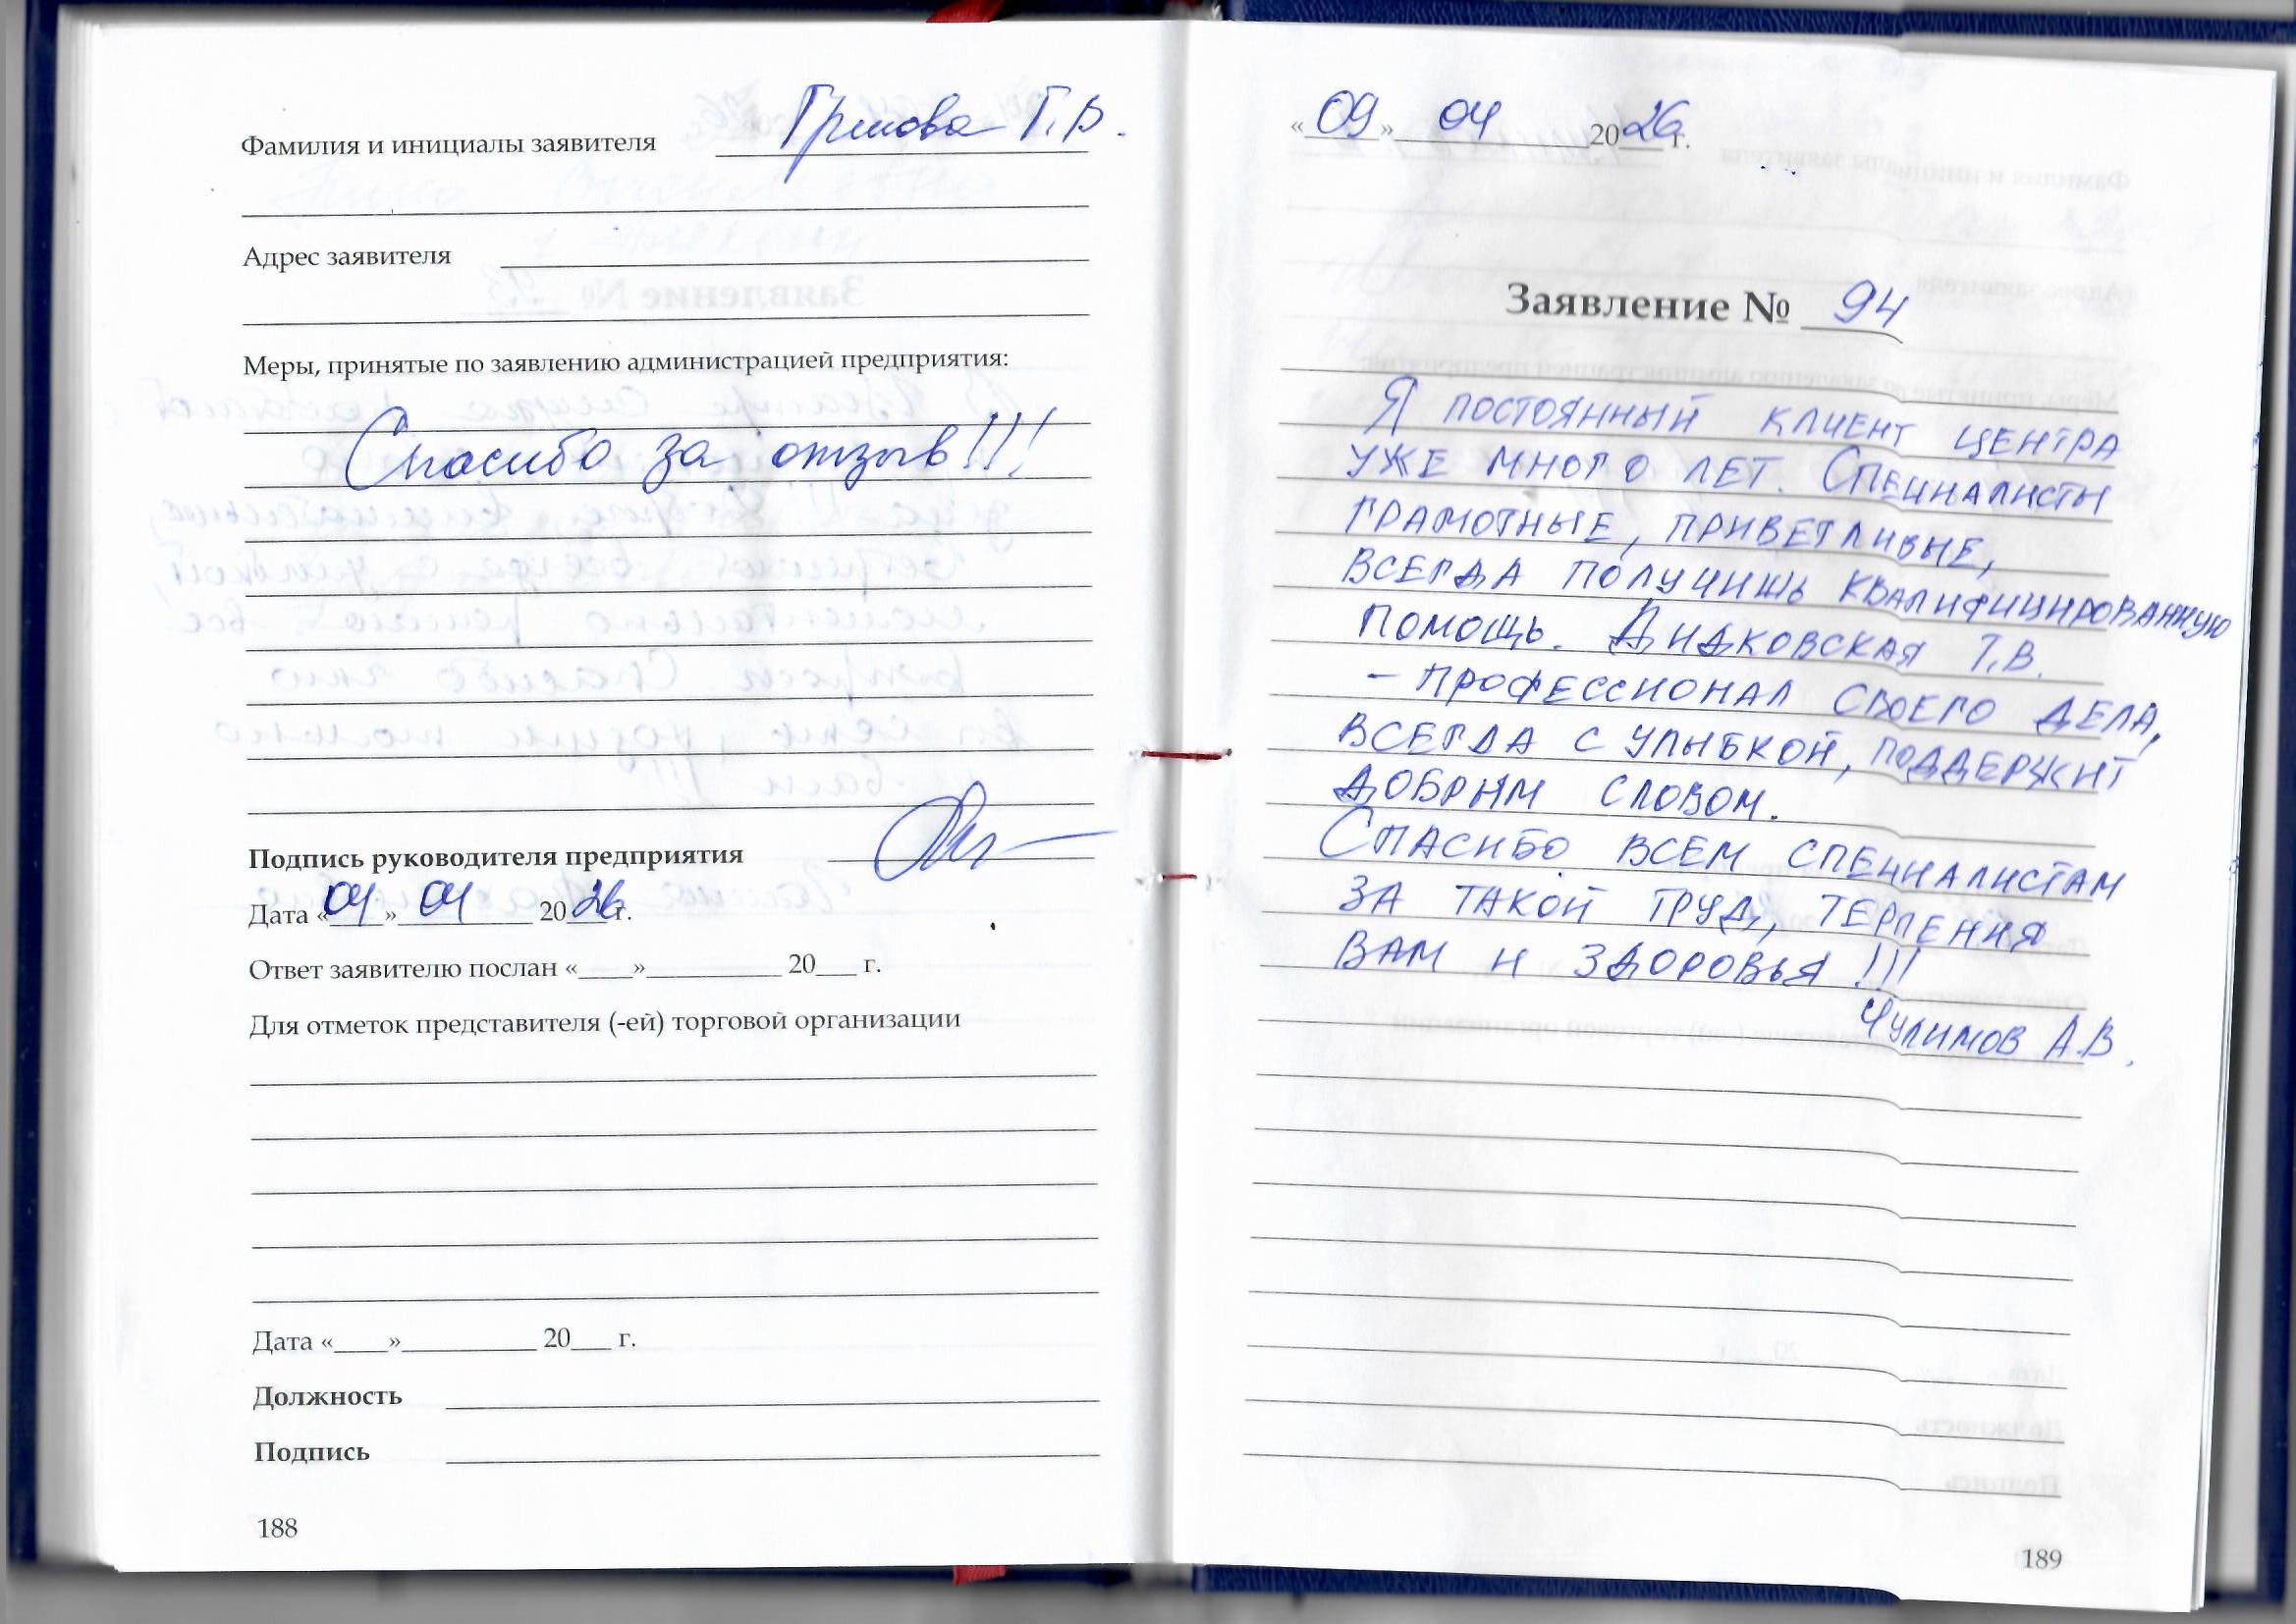 Фамилия и инициалы заявителя Громова Г.В.
Адрес заявителя
Меры, принятые по заявлению администрацией предприятия:
Спасибо за отзыв!!!
Подпись руководителя предприятия
Дата «04» 04 2026г.
Ответ заявителю послан «____»__________ 20___ г.
Для отметок представителя (-ей) торговой организации
Дата «____»__________ 20___ г.
Должность
Подпись
188
«09» 04 2026 г.
Заявление № 94
Я ПОСТОЯННЫЙ КЛИЕНТ ЦЕНТРА
УЖЕ МНОГО ЛЕТ. СПЕЦИАЛИСТЫ
ГРАМОТНЫЕ, ПРИВЕТЛИВЫЕ,
ВСЕГДА ПОЛУЧИШЬ КВАЛИФИЦИРОВАННУЮ
ПОМОЩЬ. ДИДКОВСКАЯ Т.В.
– ПРОФЕССИОНАЛ СВОЕГО ДЕЛА,
ВСЕГДА С УЛЫБКОЙ, ПОДДЕРЖИТ
ДОБРЫМ СЛОВОМ.
СПАСИБО ВСЕМ СПЕЦИАЛИСТАМ
ЗА ТАКОЙ ТРУД, ТЕРПЕНИЯ
ВАМ И ЗДОРОВЬЯ!!!
ЧУЛИМОВ А.В.
189